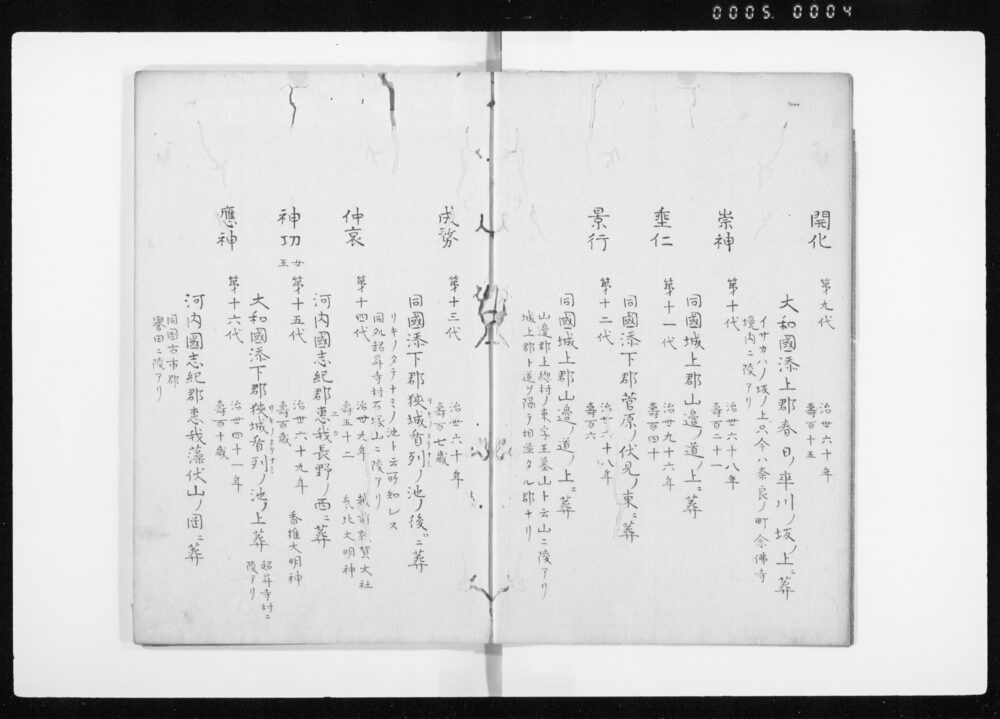 0005. 0004
開化
第九代
治世六十年
壽百十五
大和國添上郡春日ノ率川ノ坂ノ上ニ葬
イサカハノ坂ノ上只今ハ奈良ノ町念佛寺
境内ニ陵アリ
崇神
第十代
治世六十八年
壽百二十
同國城上郡山邊ノ道ノ上ニ葬
垂仁
第十一代
治世九十六年
壽百四十
同國添下郡菅原ノ伏見ノ東ニ葬
景行
第十二代
治世六十八年
壽百六
同國城上郡山邊ノ道ノ上ニ葬
山邊郡上惣村ノ東字王墓山ト云山ニ陵アリ
城上郡ト道ヲ隔テ相並タル郡ナリ
成務
第十三代
治世六十年
壽百七歳
同國添下郡狹城盾列ノ池ノ後ニ葬
リキノタテナミ
リキノタテナミノ池ト云所知レス
同処超昇寺村石塚山ニ陵アリ
仲哀
第十四代
治世九年
壽五十二
越前敦賀大社
氣比大明神
河内國志紀郡惠我長野ノ西ニ葬
エカ
神功
女王
第十五代
治世六十九年
壽百歳
香椎大明神
大和國添下郡狹城盾列ノ池ノ上葬
リキノタテナミ
超昇寺村ニ
陵アリ
應神
第十六代
治世四十一年
壽百十歳
河内國志紀郡惠我藻伏山ノ岡ニ葬
同国古市郡
譽田ニ陵アリ